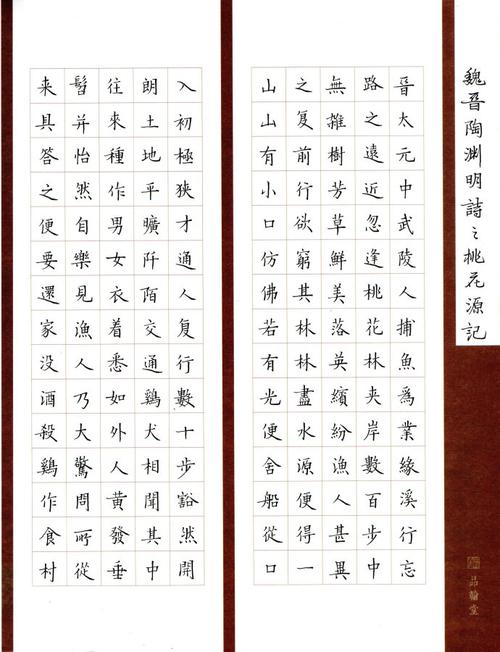 魏晉陶渊明詩之桃花源記
晉太元中武陵人捕魚爲業緣溪行忘
路之遠近忽逢桃花林夾岸數百步中
無雜樹芳草鮮美落英繽紛漁人甚異
之复前行欲窮其林林盡水源便得一
山山有小口仿佛若有光便舍船從口
入初極狹才通人复行數十步豁然開
朗土地平曠阡陌交通鷄犬相聞其中
往來種作男女衣着悉如外人黄發垂
髫并怡然自樂見漁人乃大驚問所從
来具答之便要還家没酒殺鷄作食村
品翰堂